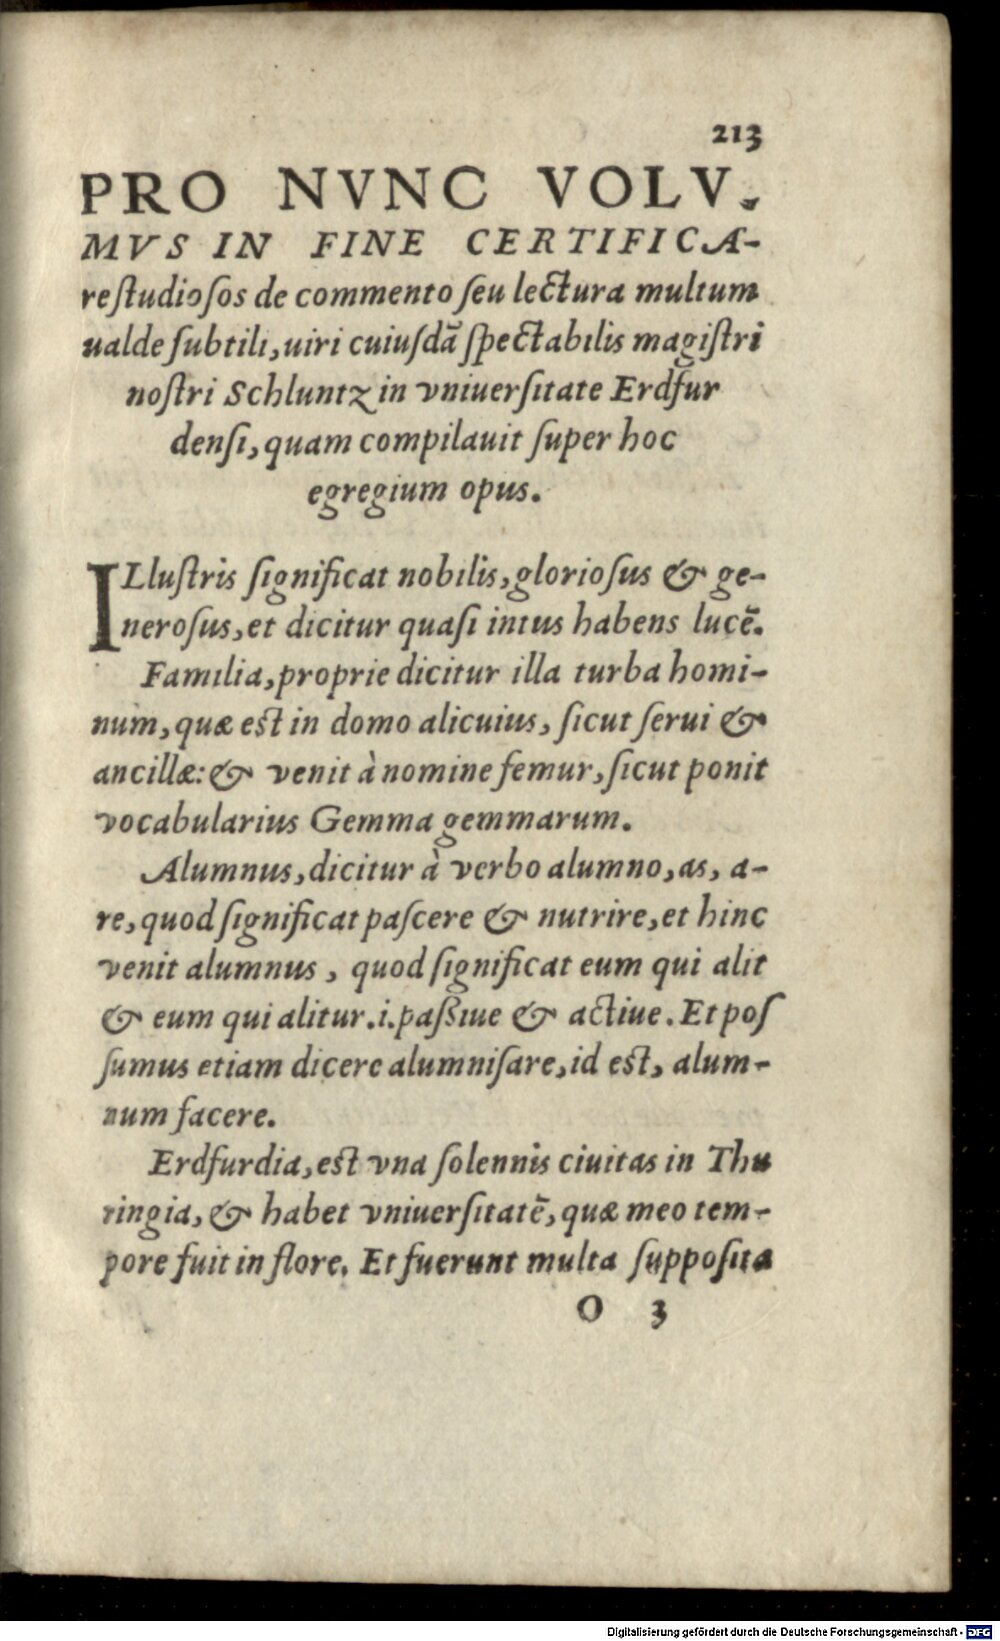 213
PRO NVNC VOLV.
MVS IN FINE CERTIFICA-
re ſtudioſos de commento ſeu lectura multum
ualde ſubtili, uiri cuiuſdã ſpectabilis magiſtri
noſtri Schluntz in vniuerſitate Erdfur
denſi, quam compilauit ſuper hoc
egregium opus.
ILluſtris ſignificat nobilis, glorioſus & ge-
neroſus, et dicitur quaſi intus habens lucẽ.
Familia, proprie dicitur illa turba homi-
num, quæ est in domo alicuius, ſicut ſerui &
ancillæ: & venit à nomine femur, ſicut ponit
vocabularius Gemma gemmarum.
Alumnus, dicitur à verbo alumno, as, a-
re, quod ſignificat paſcere & nutrire, et hinc
venit alumnus, quod ſignificat eum qui alit
& eum qui alitur .i. paßiue & actiue. Et poſ
ſumus etiam dicere alumniſare, id est, alum-
num facere.
Erdfurdia, est vna ſolennis ciuitas in Thu
ringia, & habet vniuerſitatẽ, quæ meo tem-
pore fuit in flore. Et fuerunt multa ſuppoſita
O 3
Digitalisierung gefördert durch die Deutsche Forschungsgemeinschaft - DFG